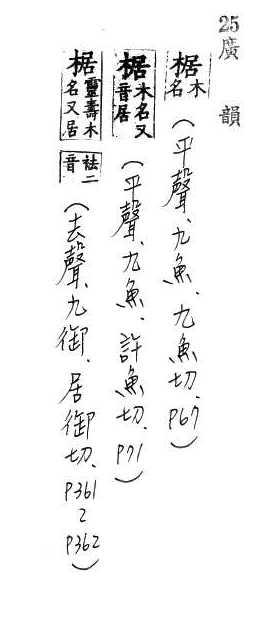 25廣韻
椐木名（平聲、九魚、九魚切、P67）
椐木名又音居（平聲、九魚、許魚切、P71）
椐靈壽木名又居祛二音（去聲、九御、居御切、P361~P362）